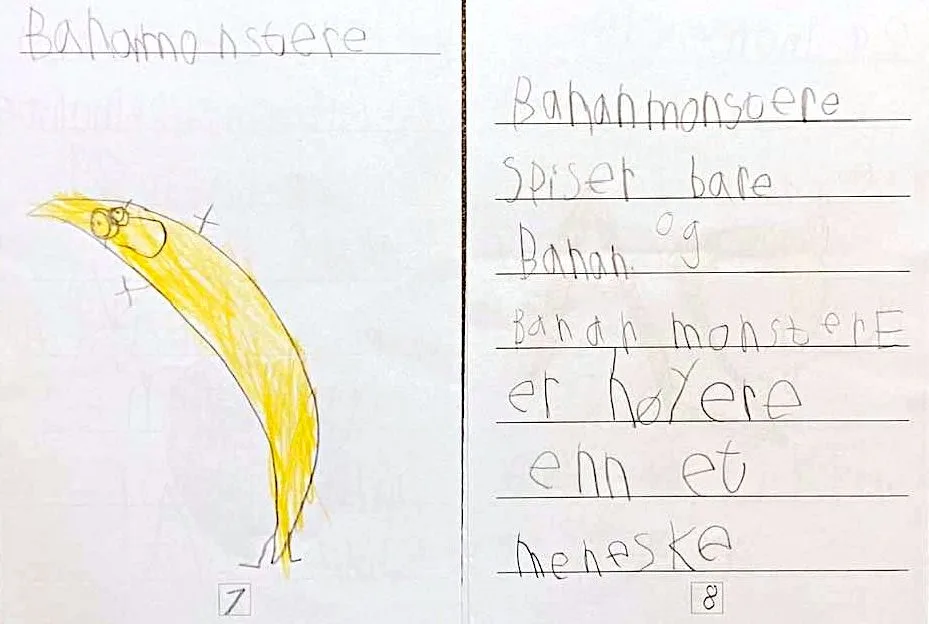 Bananmonstere
7
Bananmonstere
spiser bare
Banan. og
Banan monsterE
er høyere
enn et
meneske
8